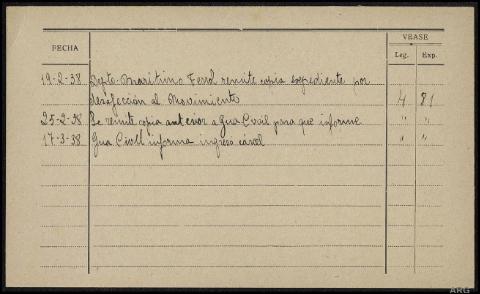 VEASE
FECHA Leg. Exp.
19-2-38 Depto. Maritimo Ferrol remite copia expediente por
desafección al Movimiento 4 81
25-2-38 Se remite copia anterior a Gua Civil para que informe " "
17-3-38 Gua Civil informa ingreso cárcel " "
ARG